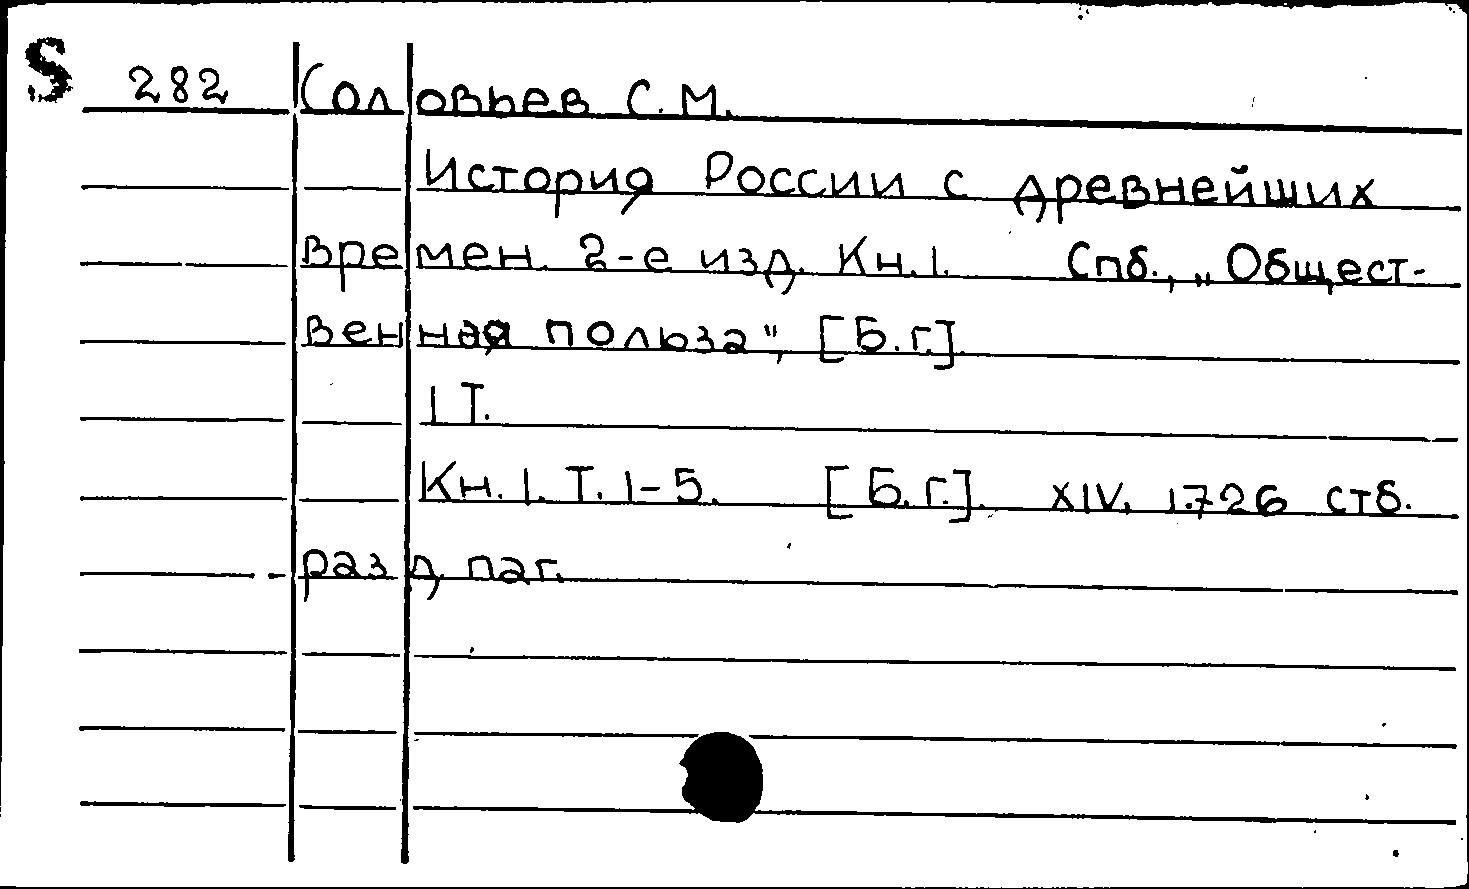 S 282 Соловьев С.М.
История России с древнейших
времен. 2-е изд. Кн.1. Спб., „Общест-
венная польза", [Б.г.].
1 т.
Кн.1. Т. 1-5. [Б.г.]. XIV, 1.726 стб.
разд. паг.